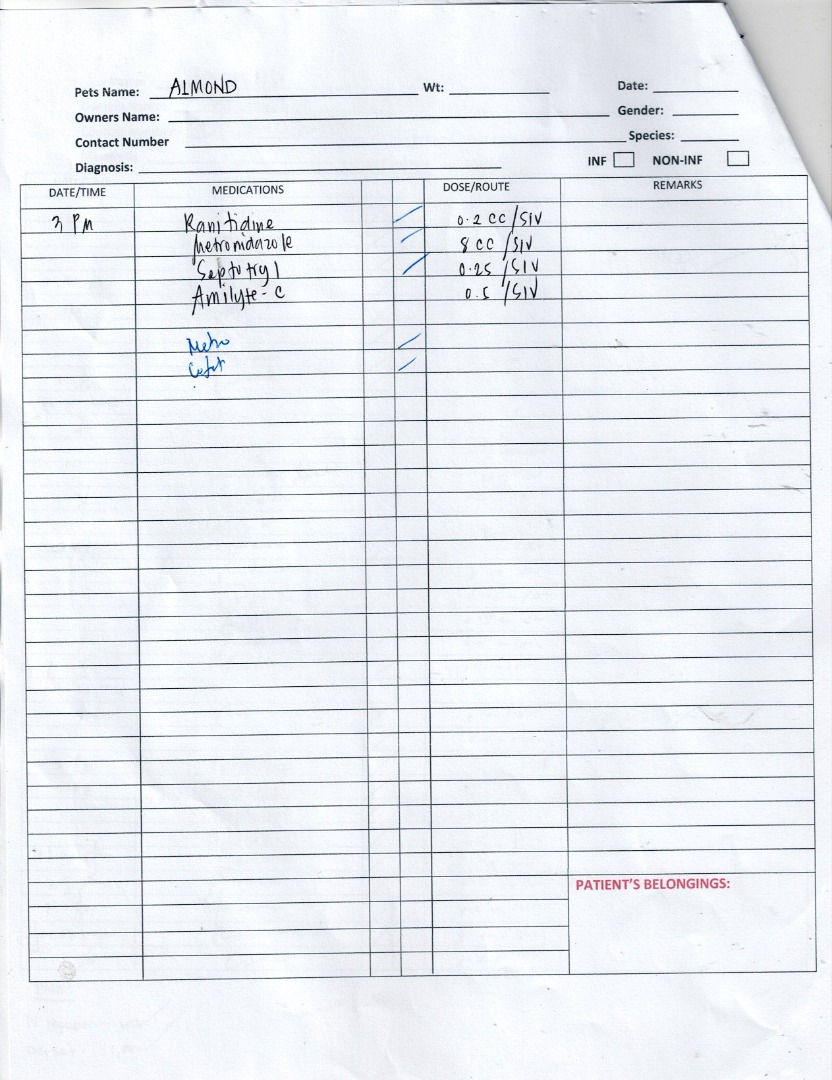 Pets Name: ALMOND Wt: Date:
Owners Name: Gender:
Contact Number Species:
Diagnosis: INF NON-INF
DATE/TIME MEDICATIONS DOSE/ROUTE REMARKS
3 PM Ranitidine 0.2 CC /SIV
Metronidazole 8 CC /SIV
Septotryl 0.25 /SIV
Amilyte-C 0.5 /SIV
Metro
PATIENT'S BELONGINGS: